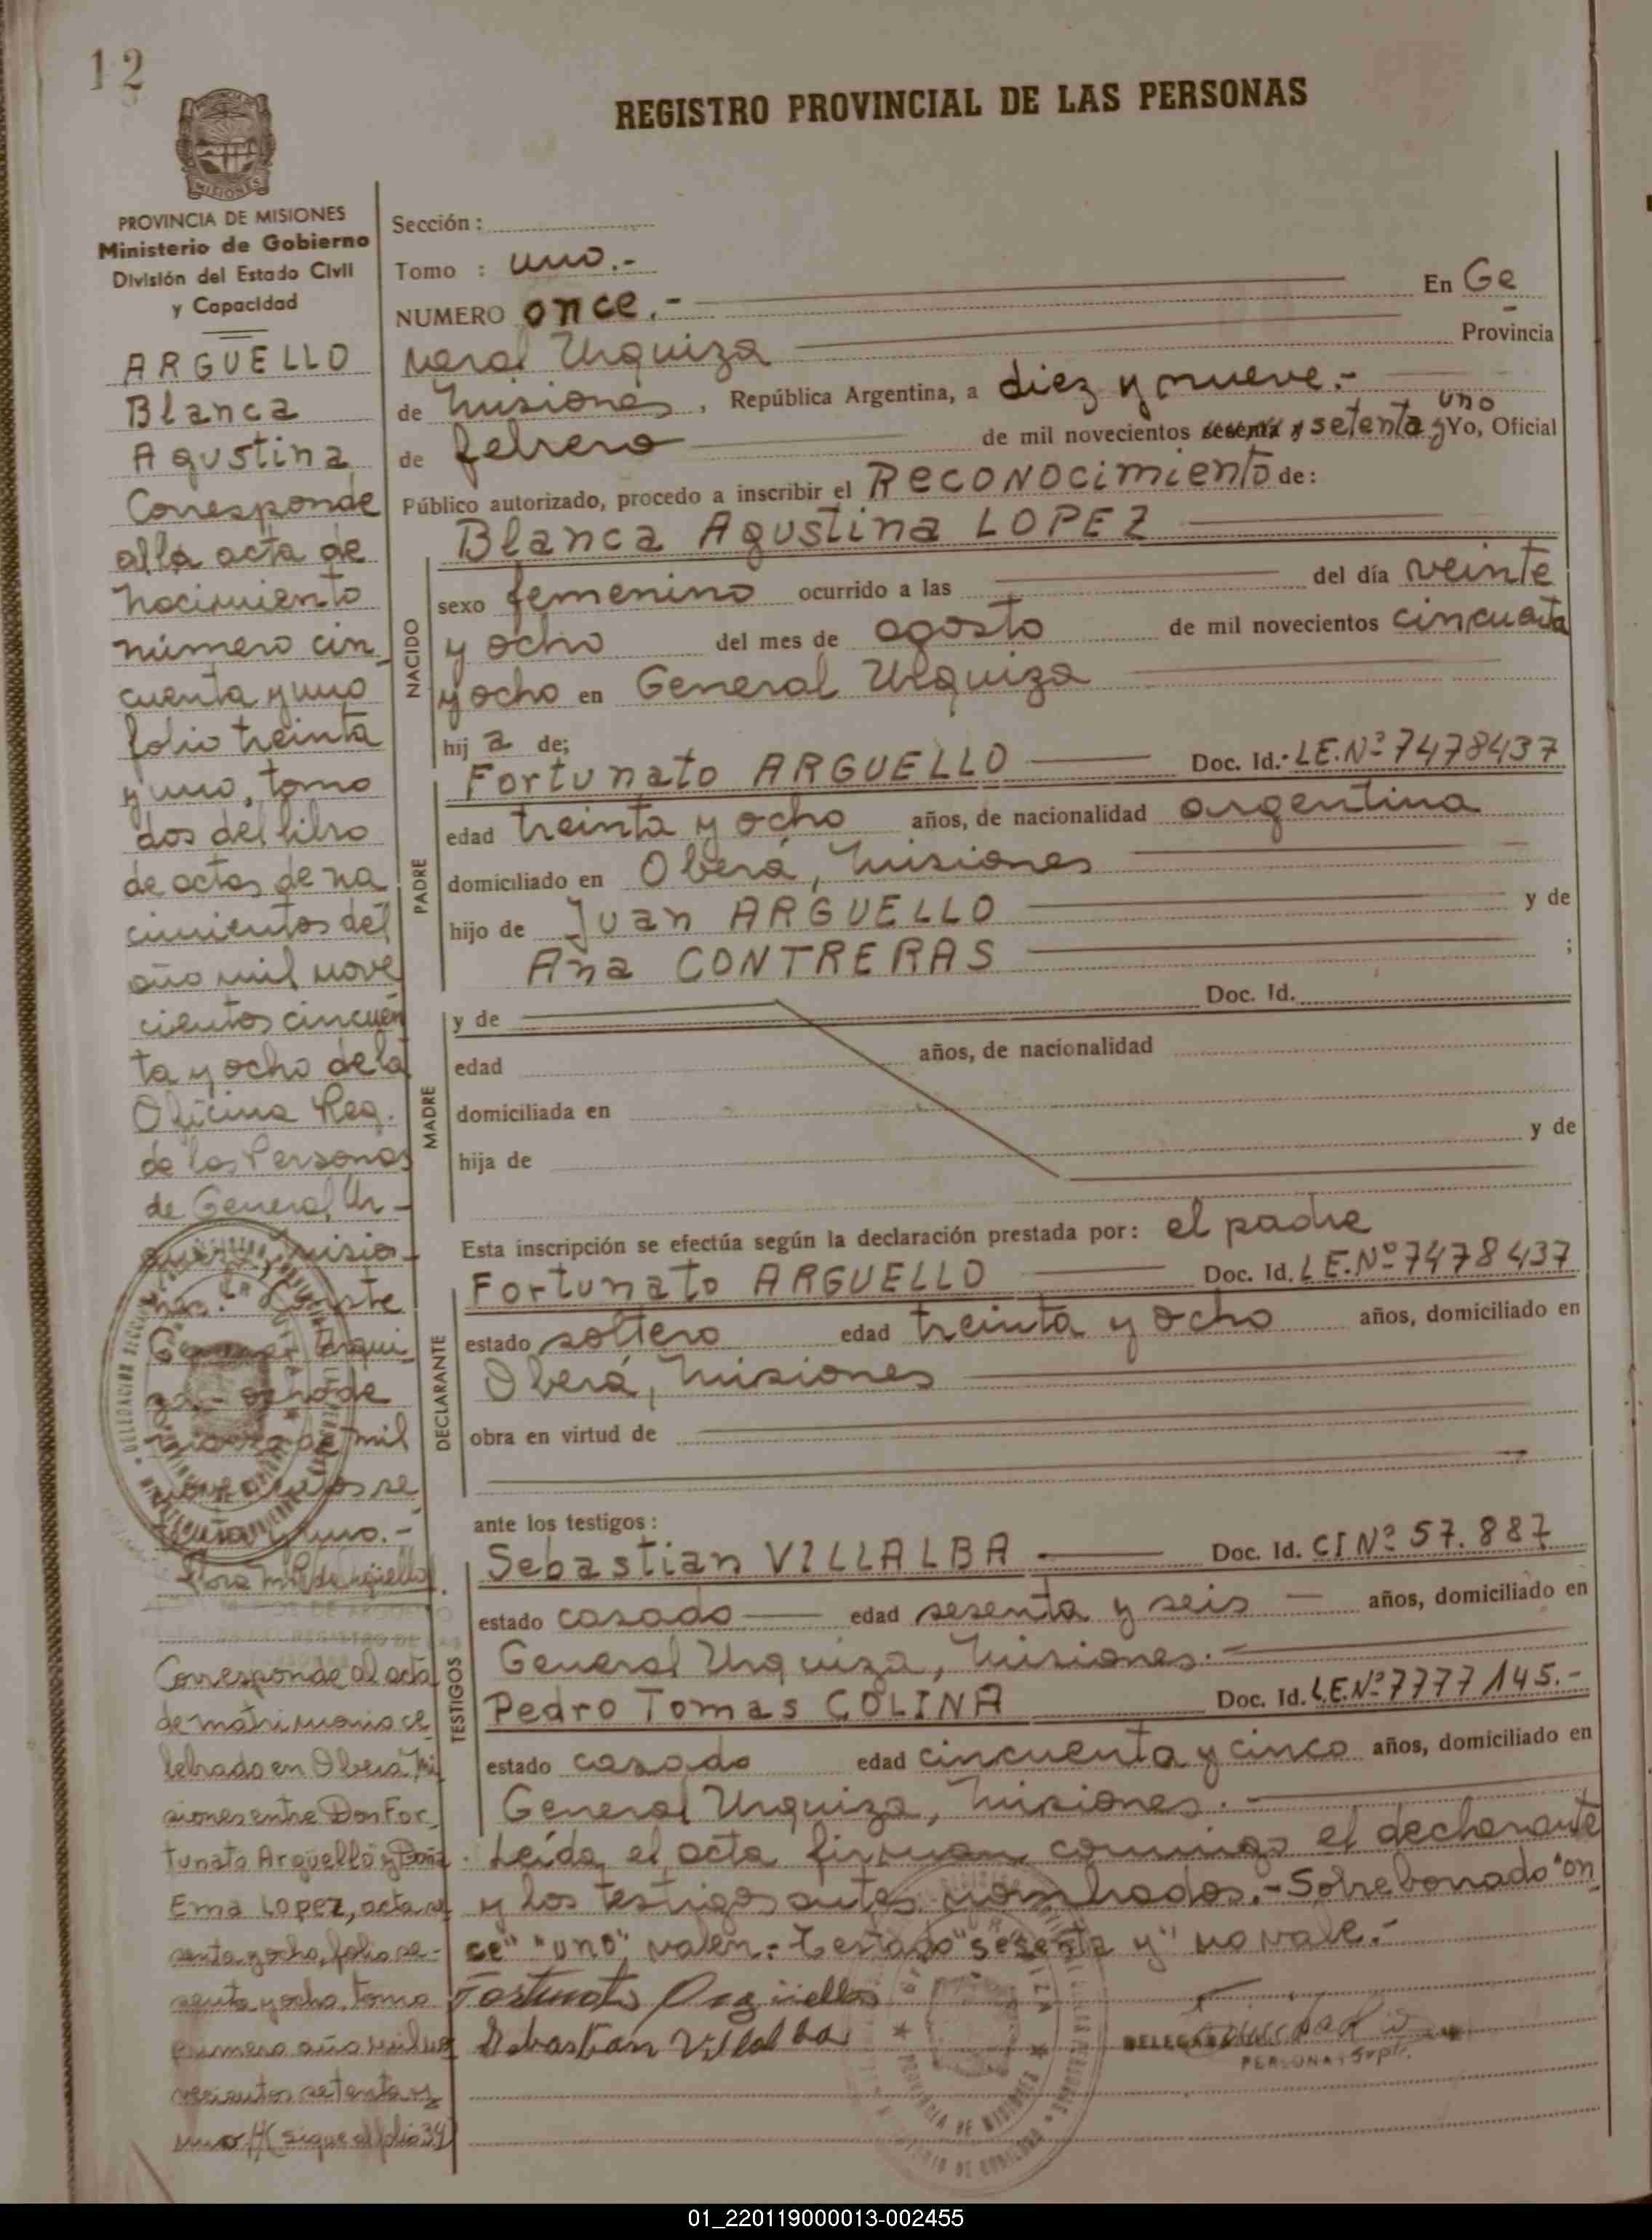 12
REGISTRO PROVINCIAL DE LAS PERSONAS
MISIONES
PROVINCIA DE MISIONES
Ministerio de Gobierno
División del Estado Civil
y Capacidad
ARGUELLO
Blanca
Agustina
Corresponde
alla acta de
nacimiento
número cin
cuenta y uno
folio treinta
y uno, tomo
dos del libro
de actas de na
cimientos del
año mil nove
cientos cincuen
ta y ocho de la
Oficina Reg.
de las Personas
de General Ur-
quiza, Misio-
nes.- Conste
General Urqui
za - ocho de
marzo de mil
novecientos se
tenta y uno.-
Corresponde al acta
de matrimonio ce
lebrado en Oberá Mi
siones entre Don For
tunato Argüello y Doña
Ema Lopez, acta se
senta y ocho, folio se-
senta y ocho, tomo
primero año mil no
vecientos setenta y
uno//(sigue al folio 34)
Sección:
Tomo : uno.-
NUMERO once.- En Ge
neral Urquiza Provincia
de Misiones, República Argentina, a diez y nueve.-
de febrero de mil novecientos sesenta y setenta y uno Yo, Oficial
Público autorizado, procedo a inscribir el Reconocimiento de:
NACIDO
Blanca Agustina LOPEZ
sexo femenino ocurrido a las del día veinte
y ocho del mes de agosto de mil novecientos cincuenta
y ocho en General Urquiza
hij a de;
PADRE
Fortunato ARGUELLO Doc. Id. LE.Nº 7478437
edad treinta y ocho años, de nacionalidad argentina
domiciliado en Oberá, Misiones
hijo de Juan ARGUELLO y de
Ana CONTRERAS ;
MADRE
y de Doc. Id.
edad años, de nacionalidad
domiciliada en
hija de y de
Esta inscripción se efectúa según la declaración prestada por: el padre
DECLARANTE
Fortunato ARGUELLO Doc. Id. LE.Nº 7478437
estado soltero edad treinta y ocho años, domiciliado en
Oberá, Misiones
obra en virtud de
ante los testigos:
TESTIGOS
Sebastian VILLALBA Doc. Id. CI Nº 57.887
estado casado edad sesenta y seis años, domiciliado en
General Urquiza, Misiones.-
Pedro Tomas COLINA Doc. Id. L.E.Nº 7777145.-
estado casado edad cincuenta y cinco años, domiciliado en
General Urquiza, Misiones.-
Leída el acta firman conmigo el declarante
y los testigos antes nombrados.- Sobreborrado "on
ce" "uno" valen.- testado "sesenta y" no vale.-
Fortunato Argüello
Sebastian Villalba
01_220119000013-002455